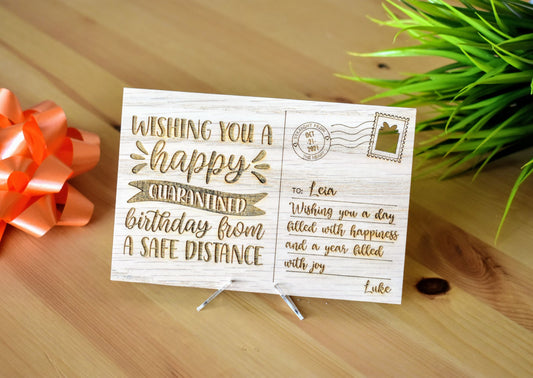 WISHING YOU A
happy
QUARANTINED
birthday from
A SAFE DISTANCE
OCT
31,
2021
TO: Leia
Wishing you a day
filled with happiness
and a year filled
with joy
Luke